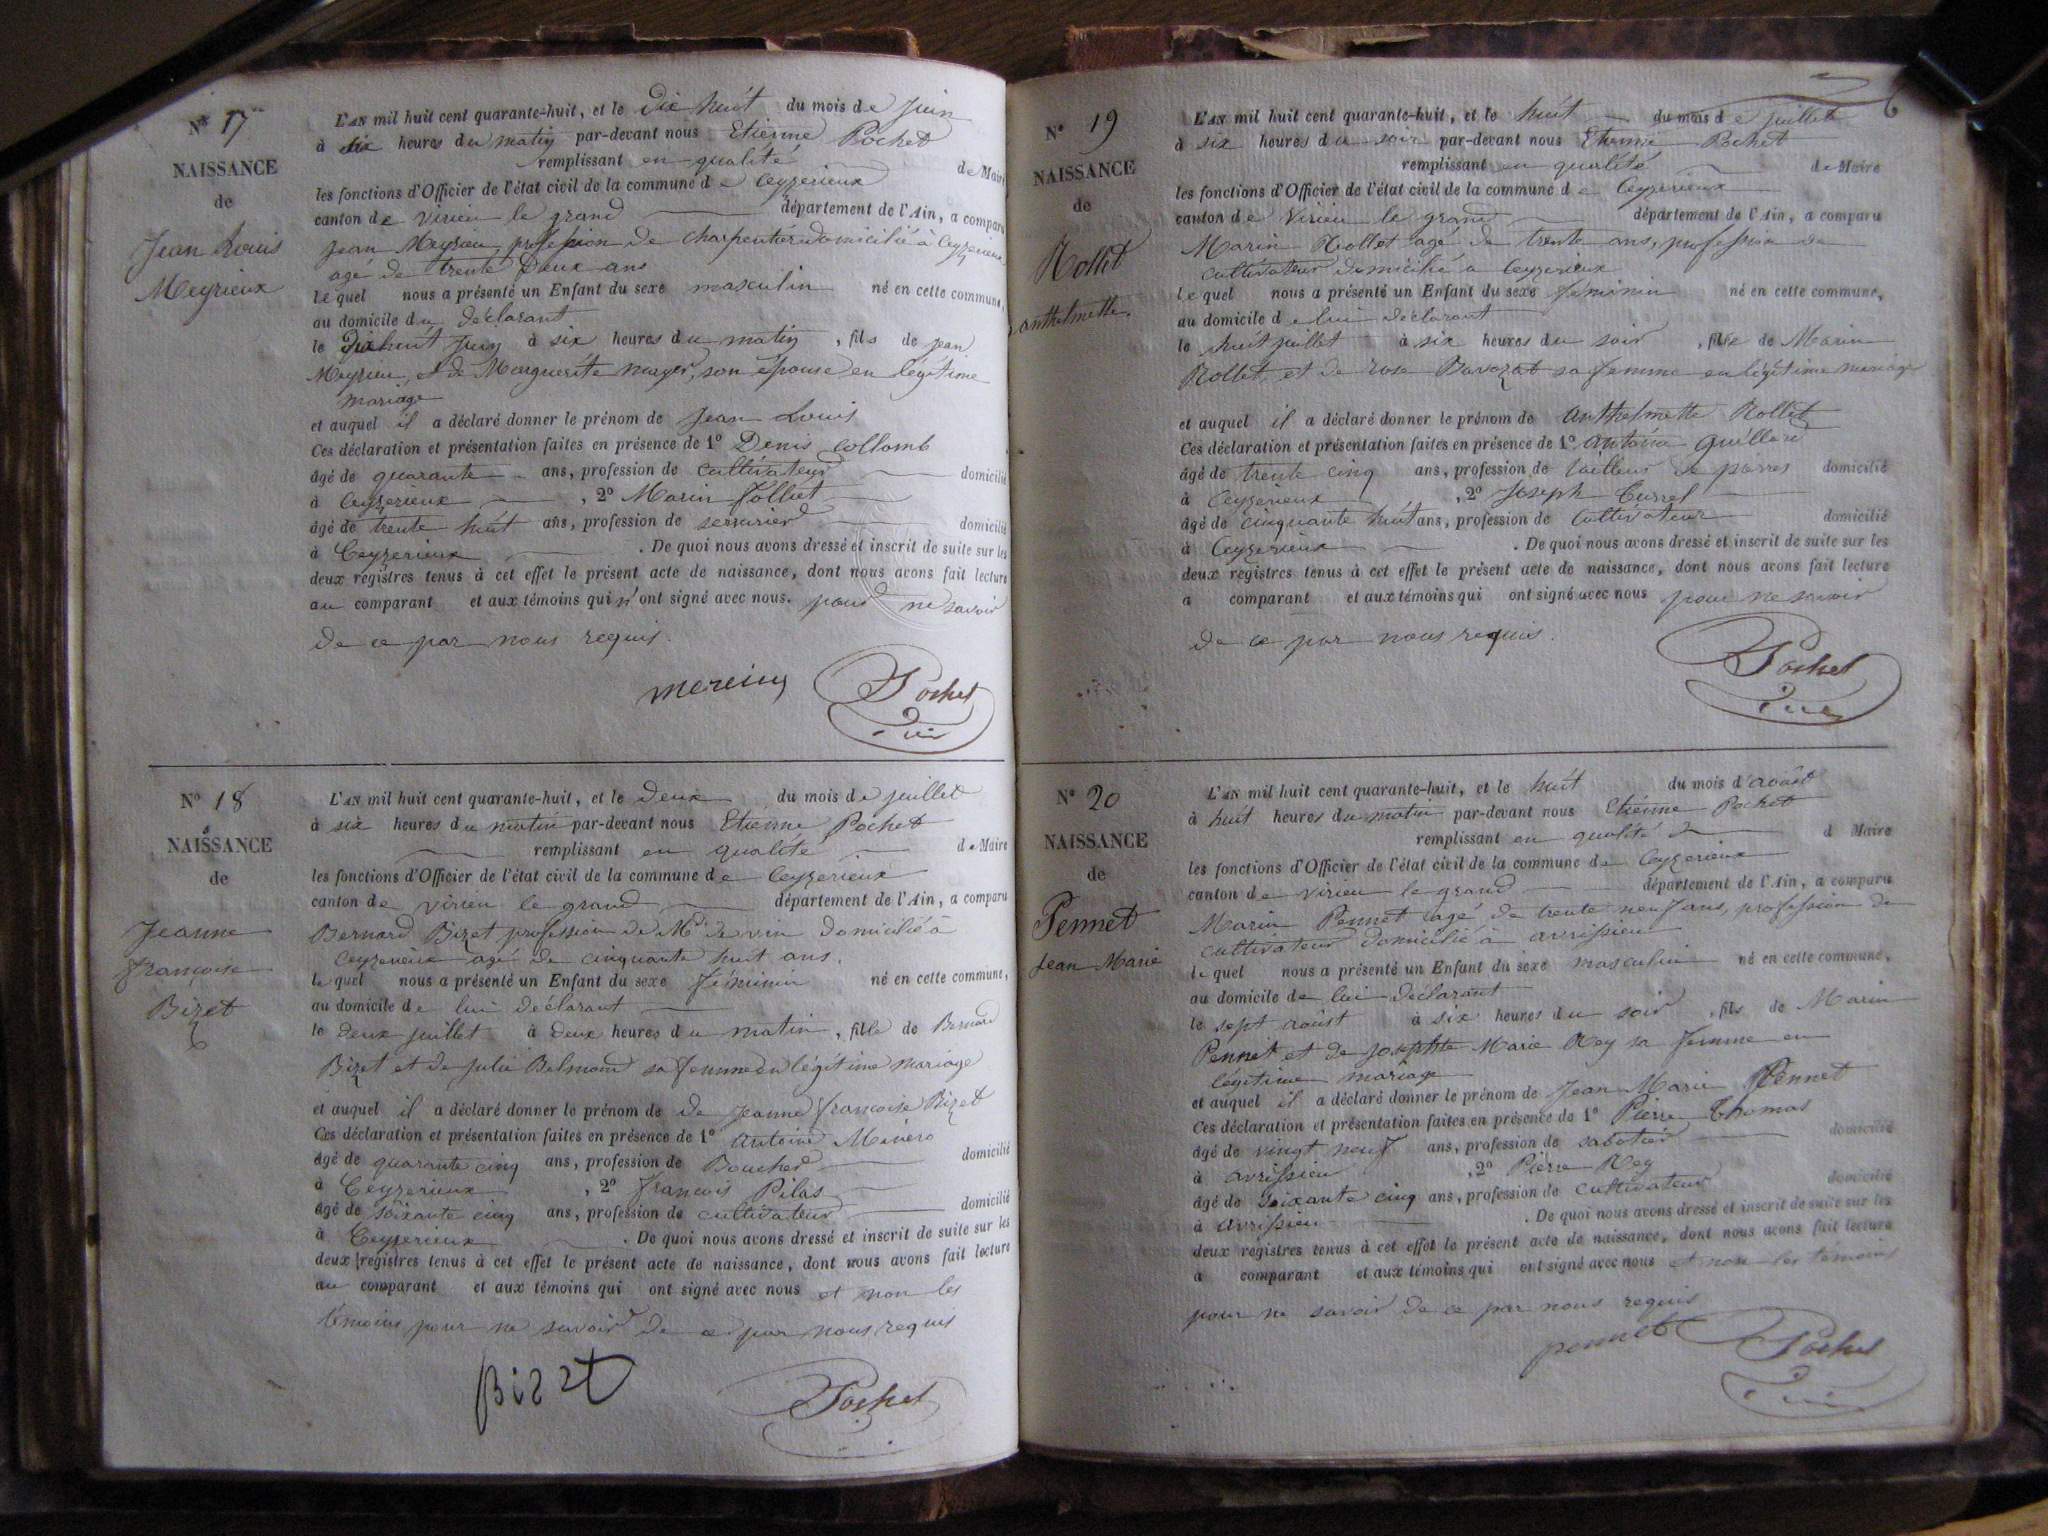 N° 17
NAISSANCE
de
Jean Louis
Meyrieux
L'AN mil huit cent quarante-huit, et le Dix huit du mois de juin
à six heures du matin par-devant nous Etienne Pochet
remplissant en qualité de Maire
les fonctions d'Officier de l'état civil de la commune de Ceyzerieux
canton de virieu le grand département de l'Ain, a comparu
jean Meyrieu, profession de charpentier domicilié à Ceyzerieux
agé de trente Deux ans
lequel nous a présenté un Enfant du sexe masculin né en cette commune,
au domicile du déclarant
le Dixhuit juin à six heures du matin, fils de jean
Meyrieu, et de Marguerite, son épouse en légitime
mariage
et auquel il a déclaré donner le prénom de Jean Louis
Ces déclaration et présentation faites en présence de 1° Denis Collomb
âgé de quarante ans, profession de cultivateur domicilié
à Ceyzerieux, 2° Marin Jolliet
âgé de trente huit ans, profession de serrurier domicilié
à Ceyzerieux. De quoi nous avons dressé et inscrit de suite sur les
deux registres tenus à cet effet le présent acte de naissance, dont nous avons fait lecture
au comparant et aux témoins qui n'ont signé avec nous. pour ne savoir
de ce par nous requis.
Pochet
N° 18
NAISSANCE
de
Jeanne
françoise
Bizet
L'AN mil huit cent quarante-huit, et le Deux du mois de juillet
à six heures du matin par-devant nous Etienne Pochet
remplissant en qualité de Maire
les fonctions d'Officier de l'état civil de la commune de Ceyzerieux
canton de virieu le grand département de l'Ain, a comparu
Bernard Bizet profession de Md de vin domicilié à
Ceyzerieux agé de cinquante huit ans.
lequel nous a présenté un Enfant du sexe féminin né en cette commune,
au domicile de lui déclarant
le deux juillet à deux heures du matin, fille de Bernard
Bizet et de julie Belmond sa femme en légitime mariage
et auquel il a déclaré donner le prénom de de Jeanne françoise Bizet
Ces déclaration et présentation faites en présence de 1° Antoine
âgé de quarante cinq ans, profession de Boucher domicilié
à Ceyzerieux, 2° françois Pilas
âgé de soixante cinq ans, profession de cultivateur domicilié
à Ceyzerieux. De quoi nous avons dressé et inscrit de suite sur les
deux registres tenus à cet effet le présent acte de naissance, dont nous avons fait lecture
au comparant et aux témoins qui ont signé avec nous et non les
témoins pour ne savoir de ce par nous requis
Bizet
Pochet
6
N° 19
NAISSANCE
de
Rollet
anthelmette.
L'AN mil huit cent quarante-huit, et le huit du mois de juillet
à six heures du soir par-devant nous Etienne Pochet
remplissant en qualité de Maire
les fonctions d'Officier de l'état civil de la commune de Ceyzerieux
canton de Virieu le grand département de l'Ain, a comparu
Marin Rollet agé de trente ans, profession de
cultivateur domicilié a Ceyzerieux
lequel nous a présenté un Enfant du sexe féminin né en cette commune,
au domicile de lui déclarant
le huit juillet à six heures du soir, fille de Marin
Rollet, et de rose sa femme en légitime mariage
et auquel il a déclaré donner le prénom de anthelmette Rollet
Ces déclaration et présentation faites en présence de 1° antoine
âgé de trente cinq ans, profession de tailleur de pierres domicilié
à Ceyzerieux, 2° Joseph Curel
âgé de cinquante huit ans, profession de cultivateur domicilié
à Ceyzerieux. De quoi nous avons dressé et inscrit de suite sur les
deux registres tenus à cet effet le présent acte de naissance, dont nous avons fait lecture
a comparant et aux témoins qui ont signé avec nous pour ne savoir
de ce par nous requis.
Pochet
N° 20
NAISSANCE
de
Pennet
Jean Marie
L'AN mil huit cent quarante-huit, et le huit du mois d'août
à huit heures du matin par-devant nous Etienne Pochet
remplissant en qualité de d Maire
les fonctions d'Officier de l'état civil de la commune de Ceyzerieux
canton de virieu le grand département de l'Ain, a comparu
Marin Pennet agé de trente neuf ans, profession de
cultivateur domicilié à avrissieu
lequel nous a présenté un Enfant du sexe masculin né en cette commune,
au domicile de lui déclarant
le sept août à six heures du soir, fils de Marin
Pennet et de josephte Marie Rey sa femme en
légitime mariage
et auquel il a déclaré donner le prénom de Jean Marie Pennet
Ces déclaration et présentation faites en présence de 1° Pierre Thomas
âgé de vingt neuf ans, profession de sabotier domicilié
à avrissieu, 2° Pierre Rey
âgé de soixante cinq ans, profession de cultivateur domicilié
à avrissieu. De quoi nous avons dressé et inscrit de suite sur les
deux registres tenus à cet effet le présent acte de naissance, dont nous avons fait lecture
a comparant et aux témoins qui ont signé avec nous et non les témoins
pour ne savoir de ce par nous requis
pennet Pochet